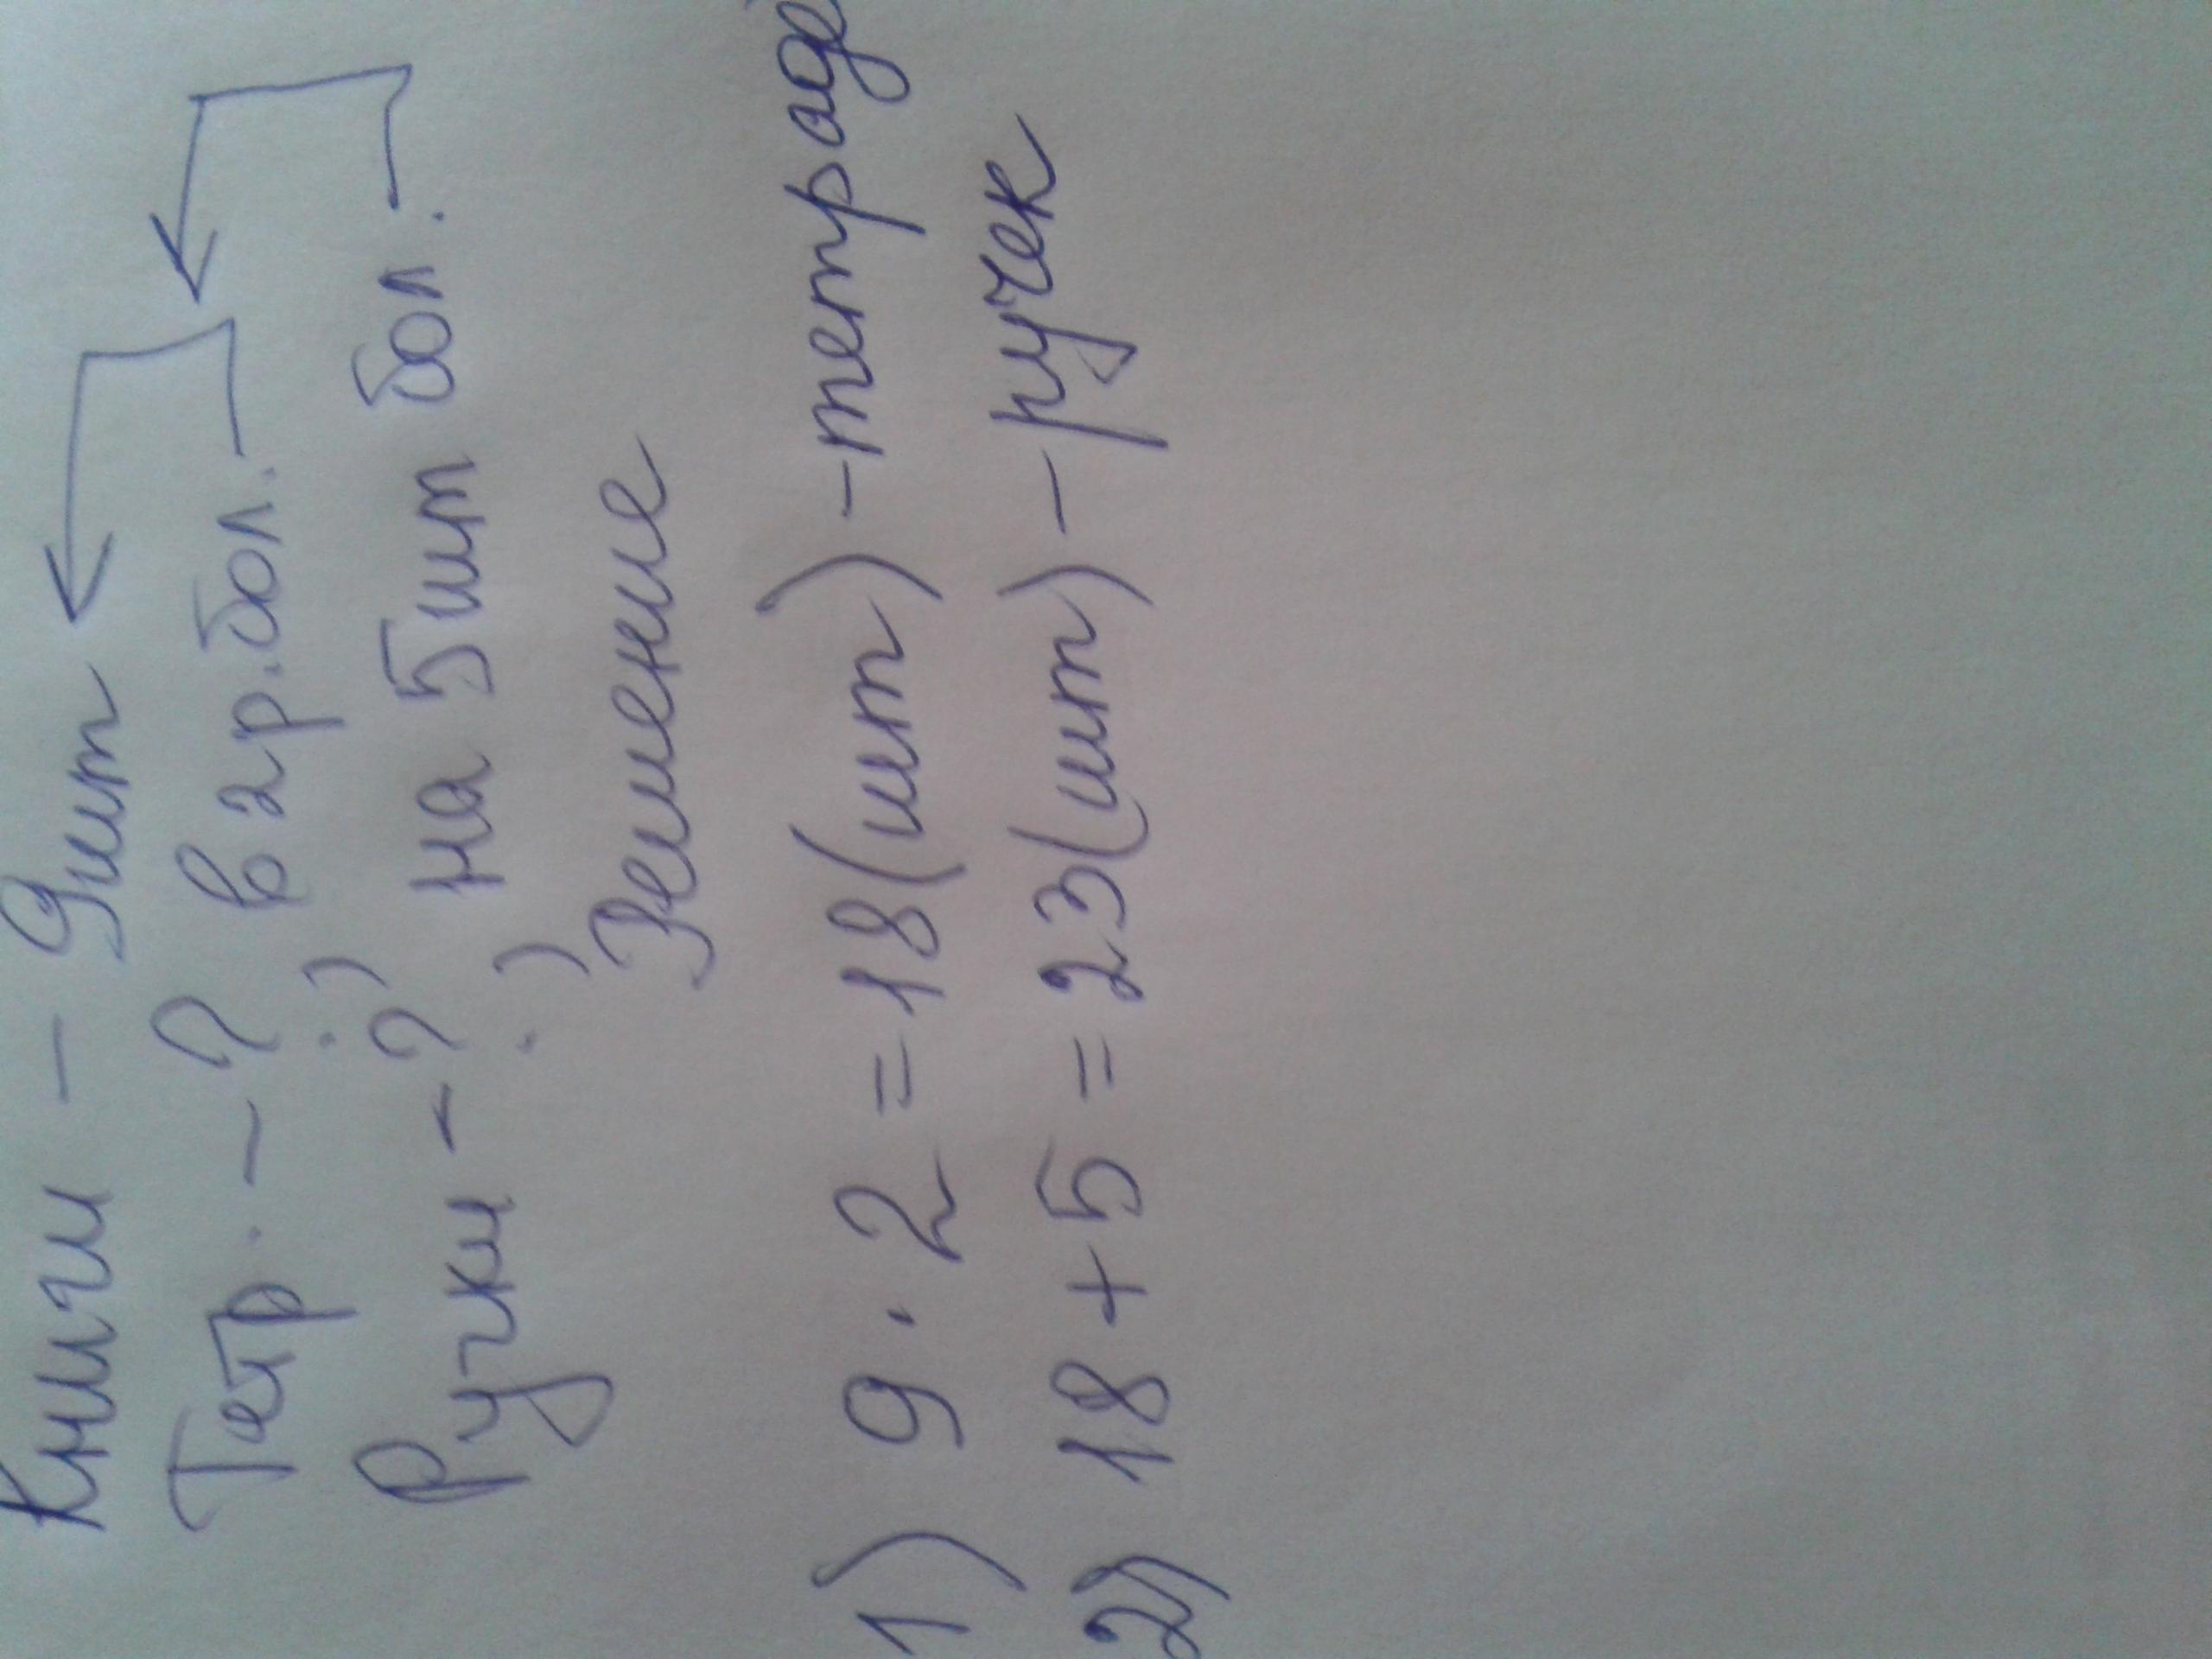 Книги - 9шт
Тетр. - ? в 2р. бол.
Ручки - ? на 5шт бол.
Решение
1) 9 · 2 = 18 (шт) - тетраде
2) 18 + 5 = 23 (шт) - ручек